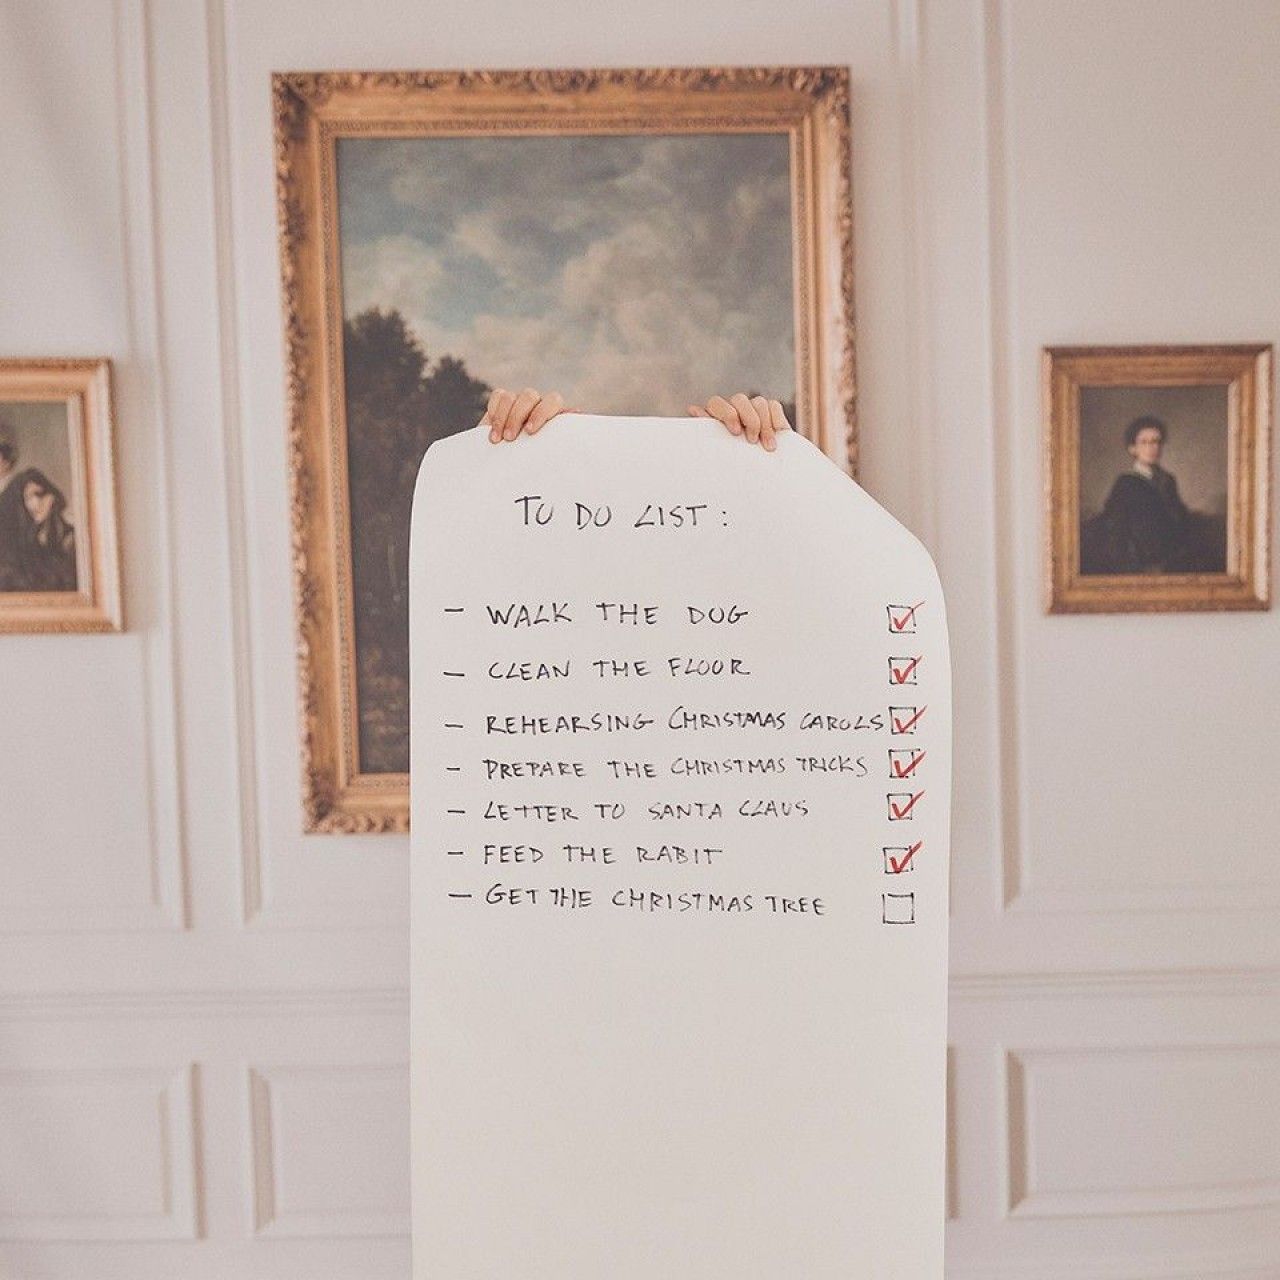 TO DO LIST:
- WALK THE DOG
- CLEAN THE FLOOR
- REHEARSING CHRISTMAS CAROLS
- PREPARE THE CHRISTMAS TRICKS
- LETTER TO SANTA CLAUS
- FEED THE RABIT
- GET THE CHRISTMAS TREE